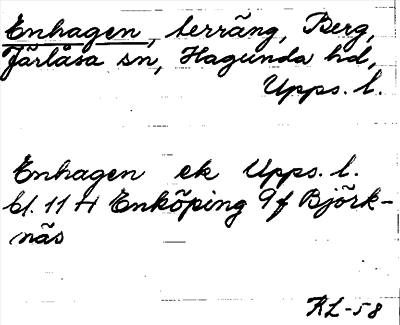 Enhagen, terräng, Berg,
Järlåsa sn, Hagunda hd,
Upps. l.
Enhagen ek Upps. l.
bl. 11 H Enköping 9f Björk-
näs
KL-58